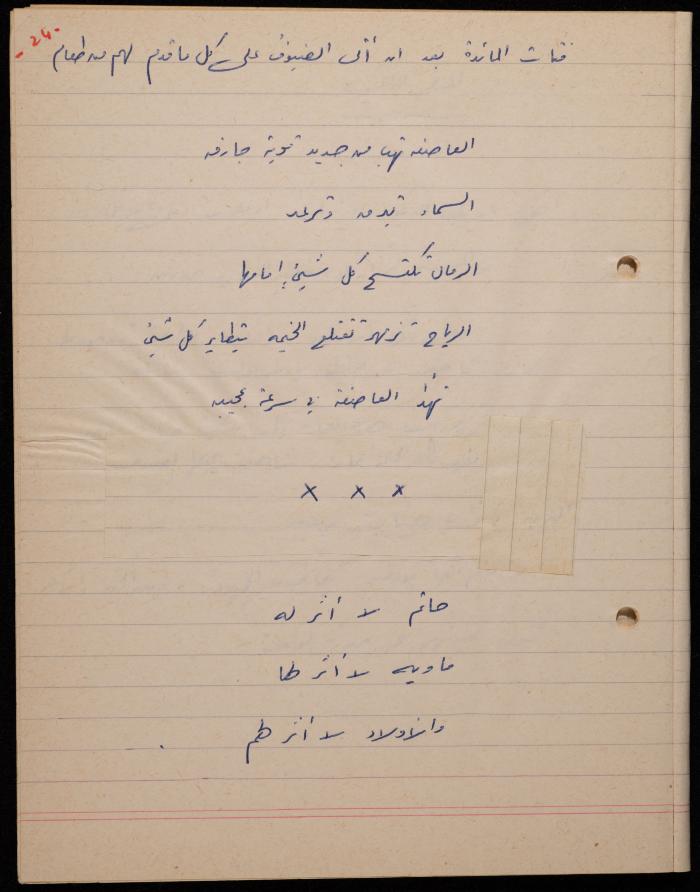 - 24 -
فتات المائدة بعد ان أتى الضيوف على كل ما قدم لهم من طعام
العاصفه تهب من جديد قوية جارفه
السماء تبرق وترعد
الرمال تكتسح كل شيئ إمامها
الرياح تزمجر تقتلع الخيمه يتطاير كل شيئ
تهدأ العاصفة في سرعة عجيبه
x x x
حاتم لا أثر له
ماويه لا أثر لها
والاولاد لا أثر لهم .